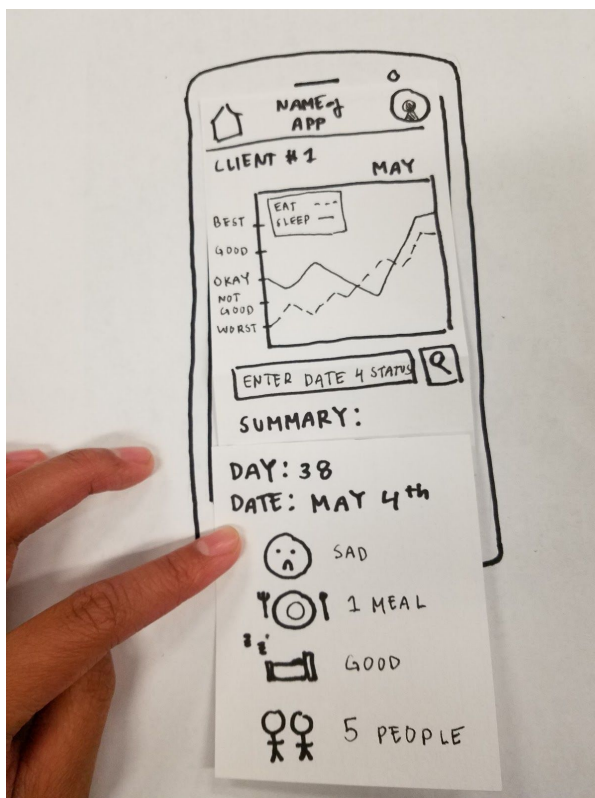 NAME of
APP
CLIENT # 1
MAY
EAT
SLEEP
BEST
GOOD
OKAY
NOT
GOOD
WORST
ENTER DATE 4 STATUS
SUMMARY:
DAY: 38
DATE: MAY 4th
SAD
1 MEAL
z z
GOOD
5 PEOPLE